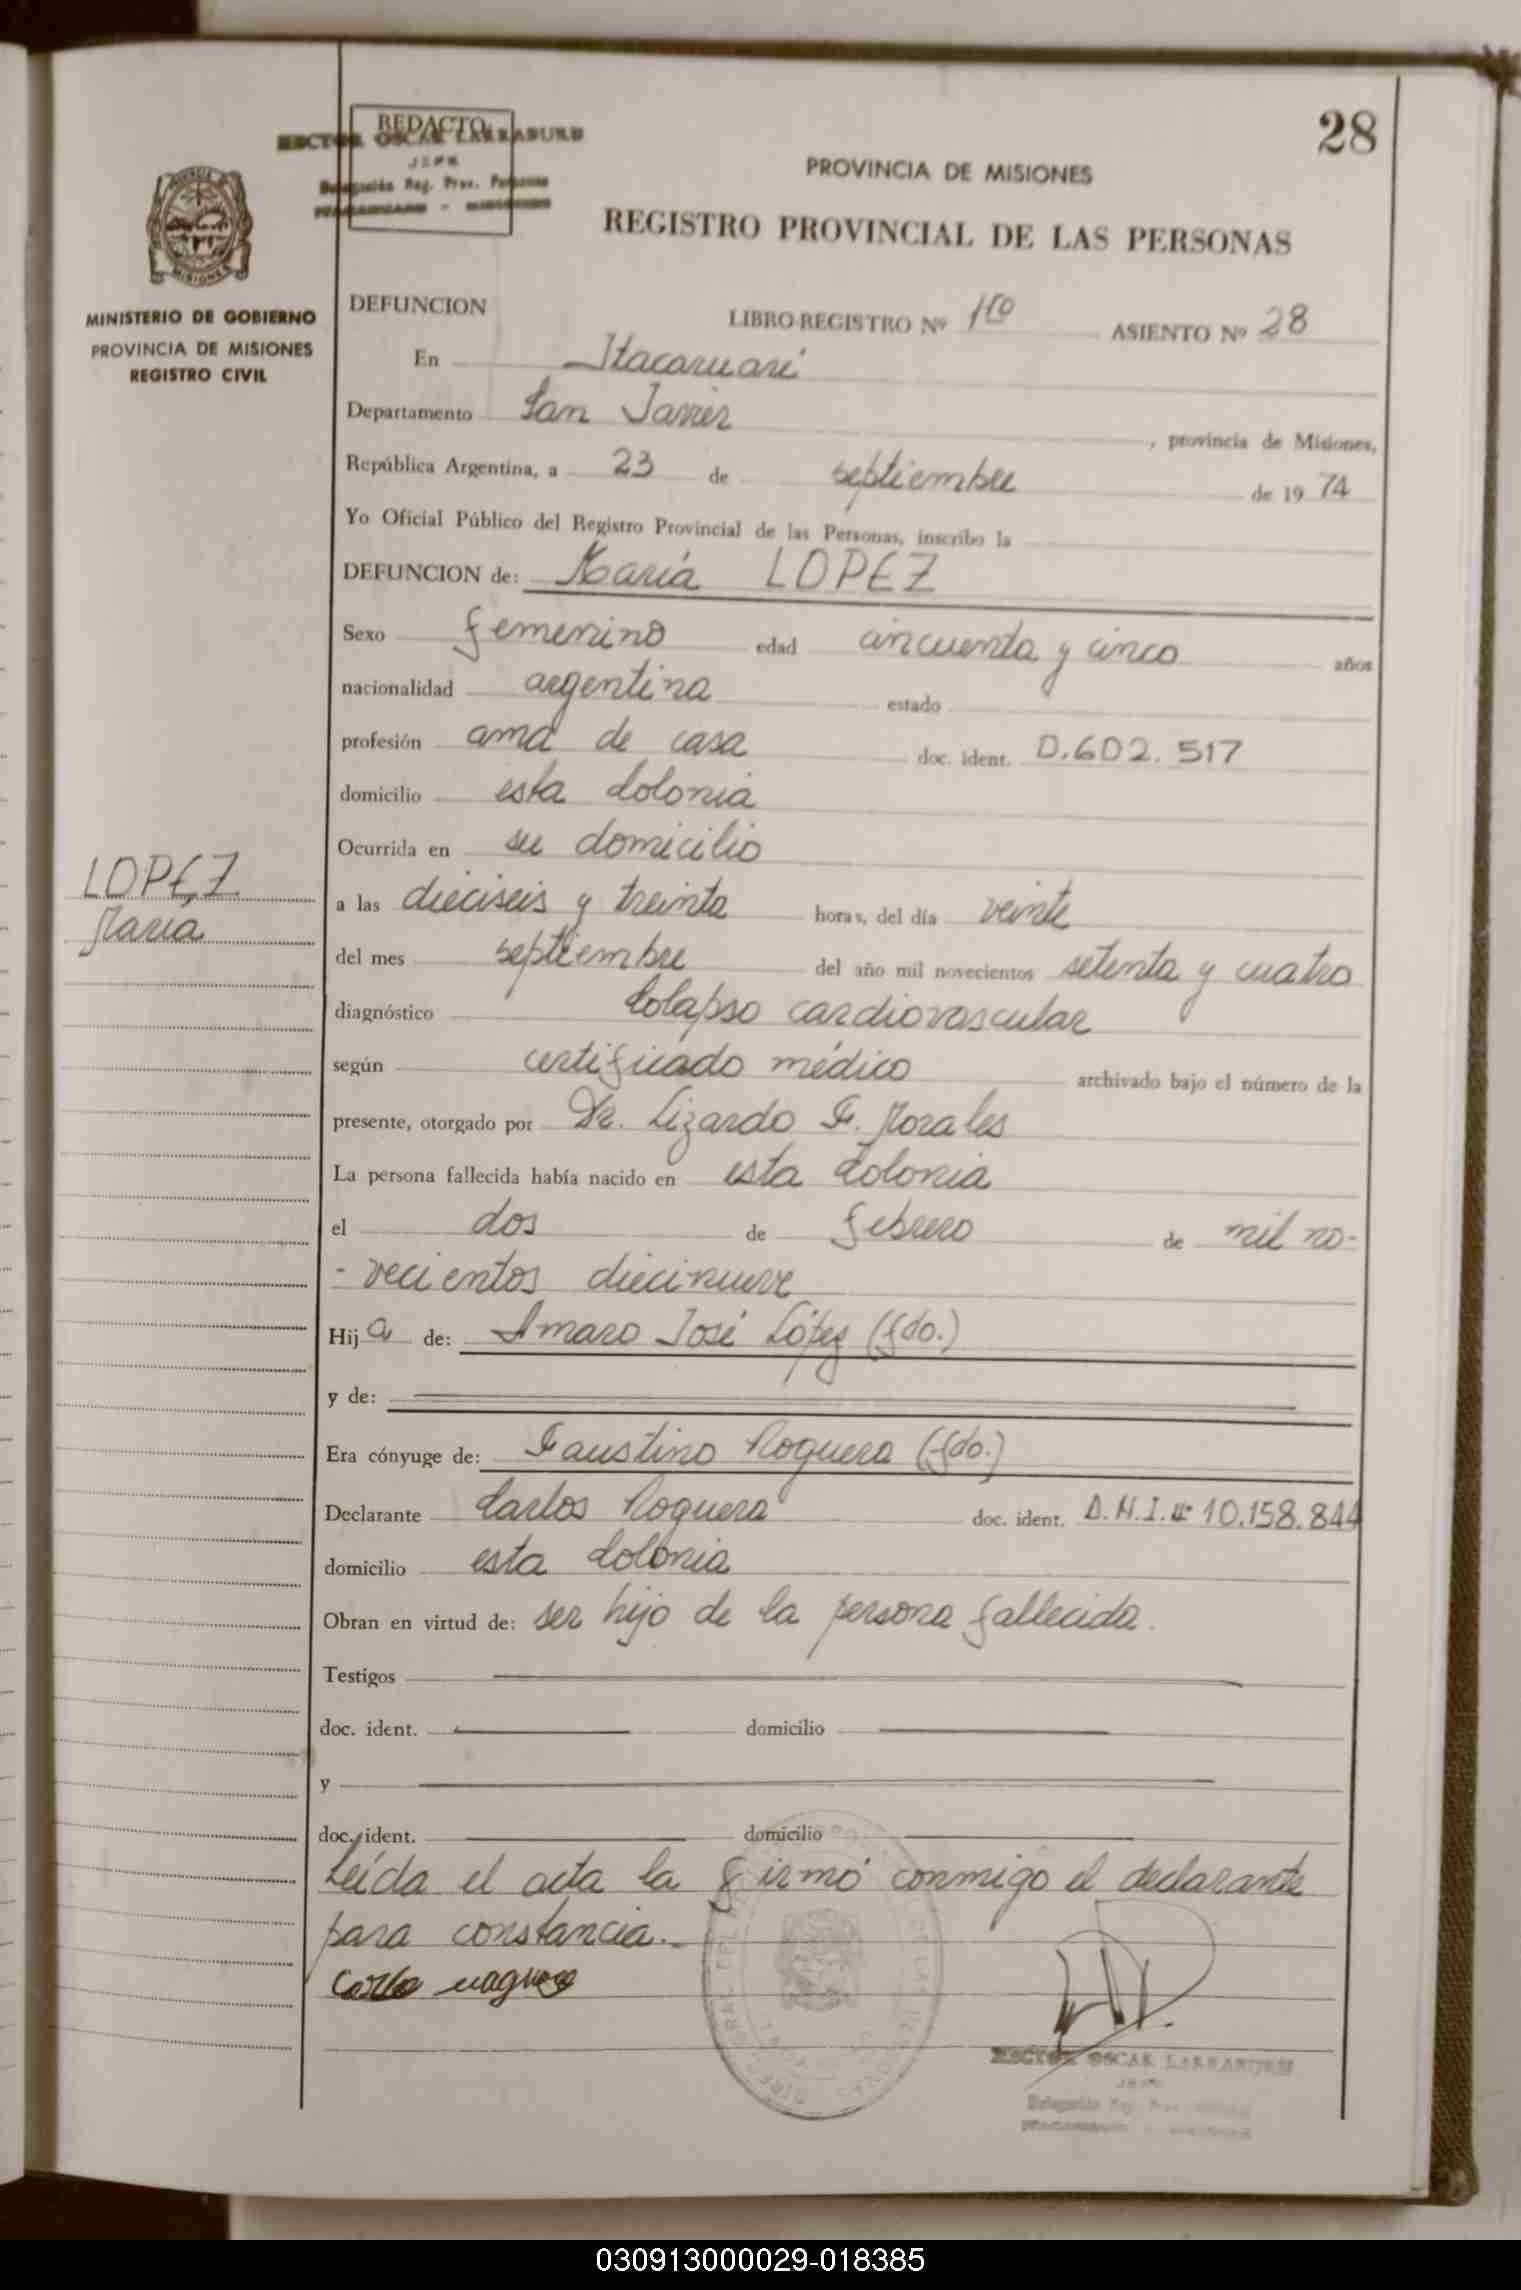 28
REDACTO
HECTOR OSCAR LARRABURU
JEFE
Delegación Reg. Prov. Personas
PROVINCIA DE MISIONES
REGISTRO PROVINCIAL DE LAS PERSONAS
MISIONES
MINISTERIO DE GOBIERNO
PROVINCIA DE MISIONES
REGISTRO CIVIL
DEFUNCION LIBRO-REGISTRO Nº 1ro ASIENTO Nº 28
En Itacaruaré
Departamento San Javier, provincia de Misiones,
República Argentina, a 23 de septiembre de 1974
Yo Oficial Público del Registro Provincial de las Personas, inscribo la
DEFUNCION de: María LOPEZ
Sexo femenino edad cincuenta y cinco años
nacionalidad argentina estado
profesión ama de casa doc. ident. 0.602.517
domicilio esta Colonia
Ocurrida en su domicilio
LOPEZ
María
a las dieciseis y treinta horas, del día veinte
del mes septiembre del año mil novecientos setenta y cuatro
diagnóstico Colapso cardiovascular
según certificado médico archivado bajo el número de la
presente, otorgado por Dr. Lizardo F. Morales
La persona fallecida había nacido en esta Colonia
el dos de febrero de mil no-
-vecientos diecinueve
Hija de: Amaro José López (fdo.)
y de:
Era cónyuge de: Faustino Noguera (fdo.)
Declarante Carlos Noguera doc. ident. D.N.I. Nº 10.158.844
domicilio esta Colonia
Obran en virtud de: ser hijo de la persona fallecida.
Testigos
doc. ident. domicilio
y
doc. ident. domicilio
Leída el acta la firmó conmigo el declarante
para constancia.-
HECTOR OSCAR LARRABURU
JEFE
030913000029-018385